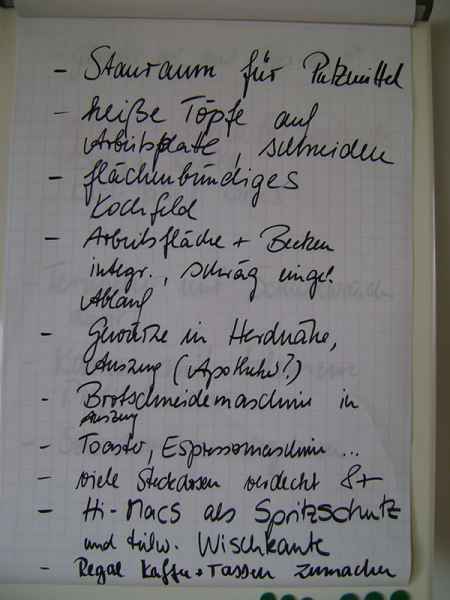 - Stauraum für Putzmittel
- heiße Töpfe auf
Arbeitsplatte, schneiden
- flächenbündiges
Kochfeld
- Arbeitsfläche + Becken
integr., schräg eingel.
Ablauf
- Gewürze in Herdnähe,
Auszug (Apotheker?)
- Brotschneidemaschine in
Auszug
- Toaster, Espressomaschine ...
- viele Steckdosen verdeckt 8+
- Hi-Macs als Spritzschutz
und teilw. Wischkante
- Regal Kaffee + Tassen zumachen